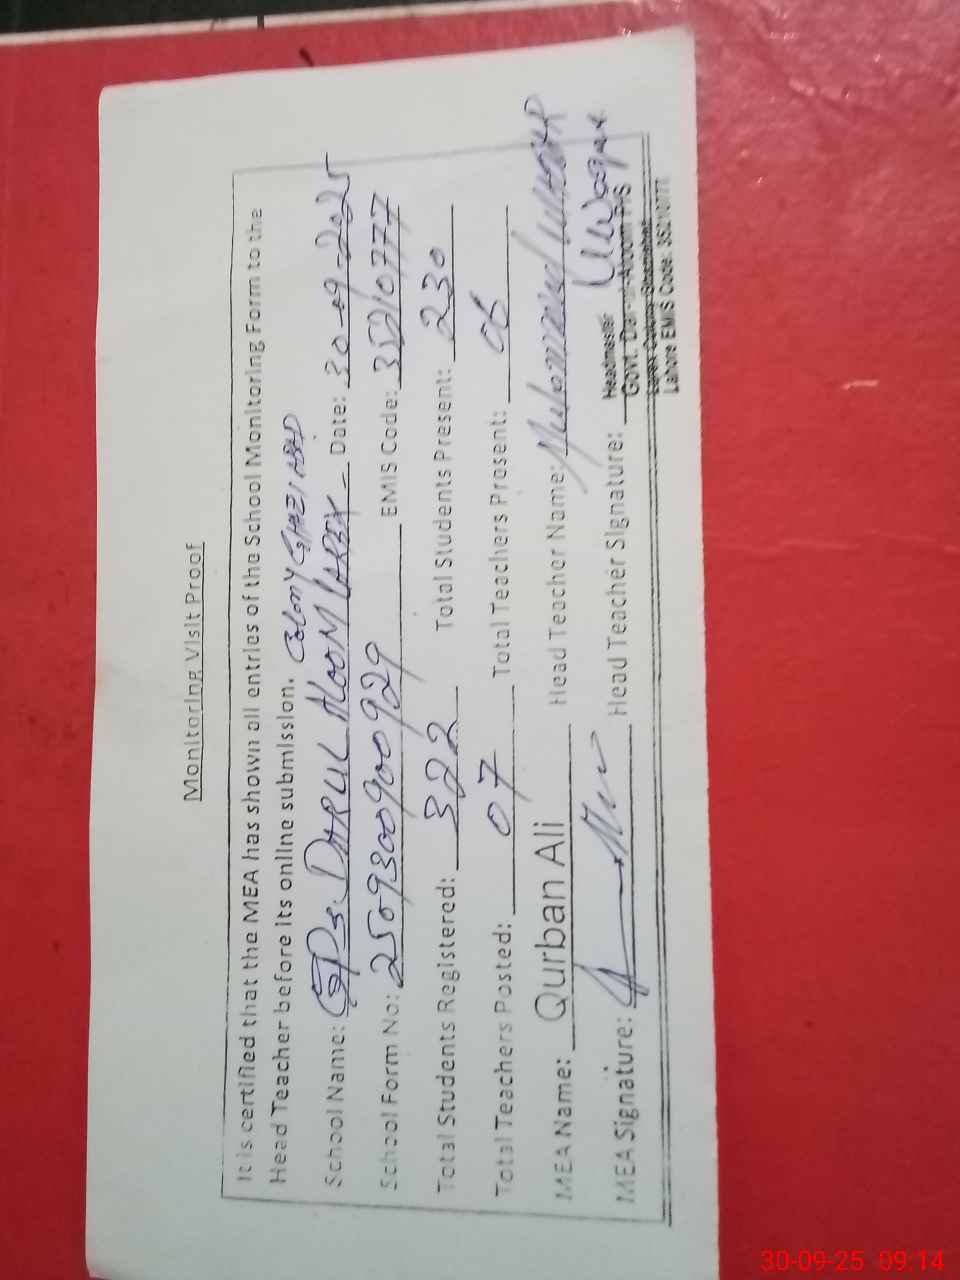 Monitoring Visit Proof
It is certified that the MEA has shown all entries of the School Monitoring Form to the
Head Teacher before its online submission. COLONY GHAZI ABAD
School Name: GPS. DARUL ALOOM LAREX - Date: 30-09-2025
School Form No: 2509300900929 EMIS Code: 35210777
Total Students Registered: 322 Total Students Present: 230
Total Teachers Posted: 07 Total Teachers Present: 06
MEA Name: Qurban Ali Head Teacher Name: Muhammad
MEA Signature: Head Teacher Signature: Waqar
Headmaster
Govt. Dar-ul-Aloom P/S
Larex Colony
Lahore EMIS Code: 35210777
30-09-25 09:14